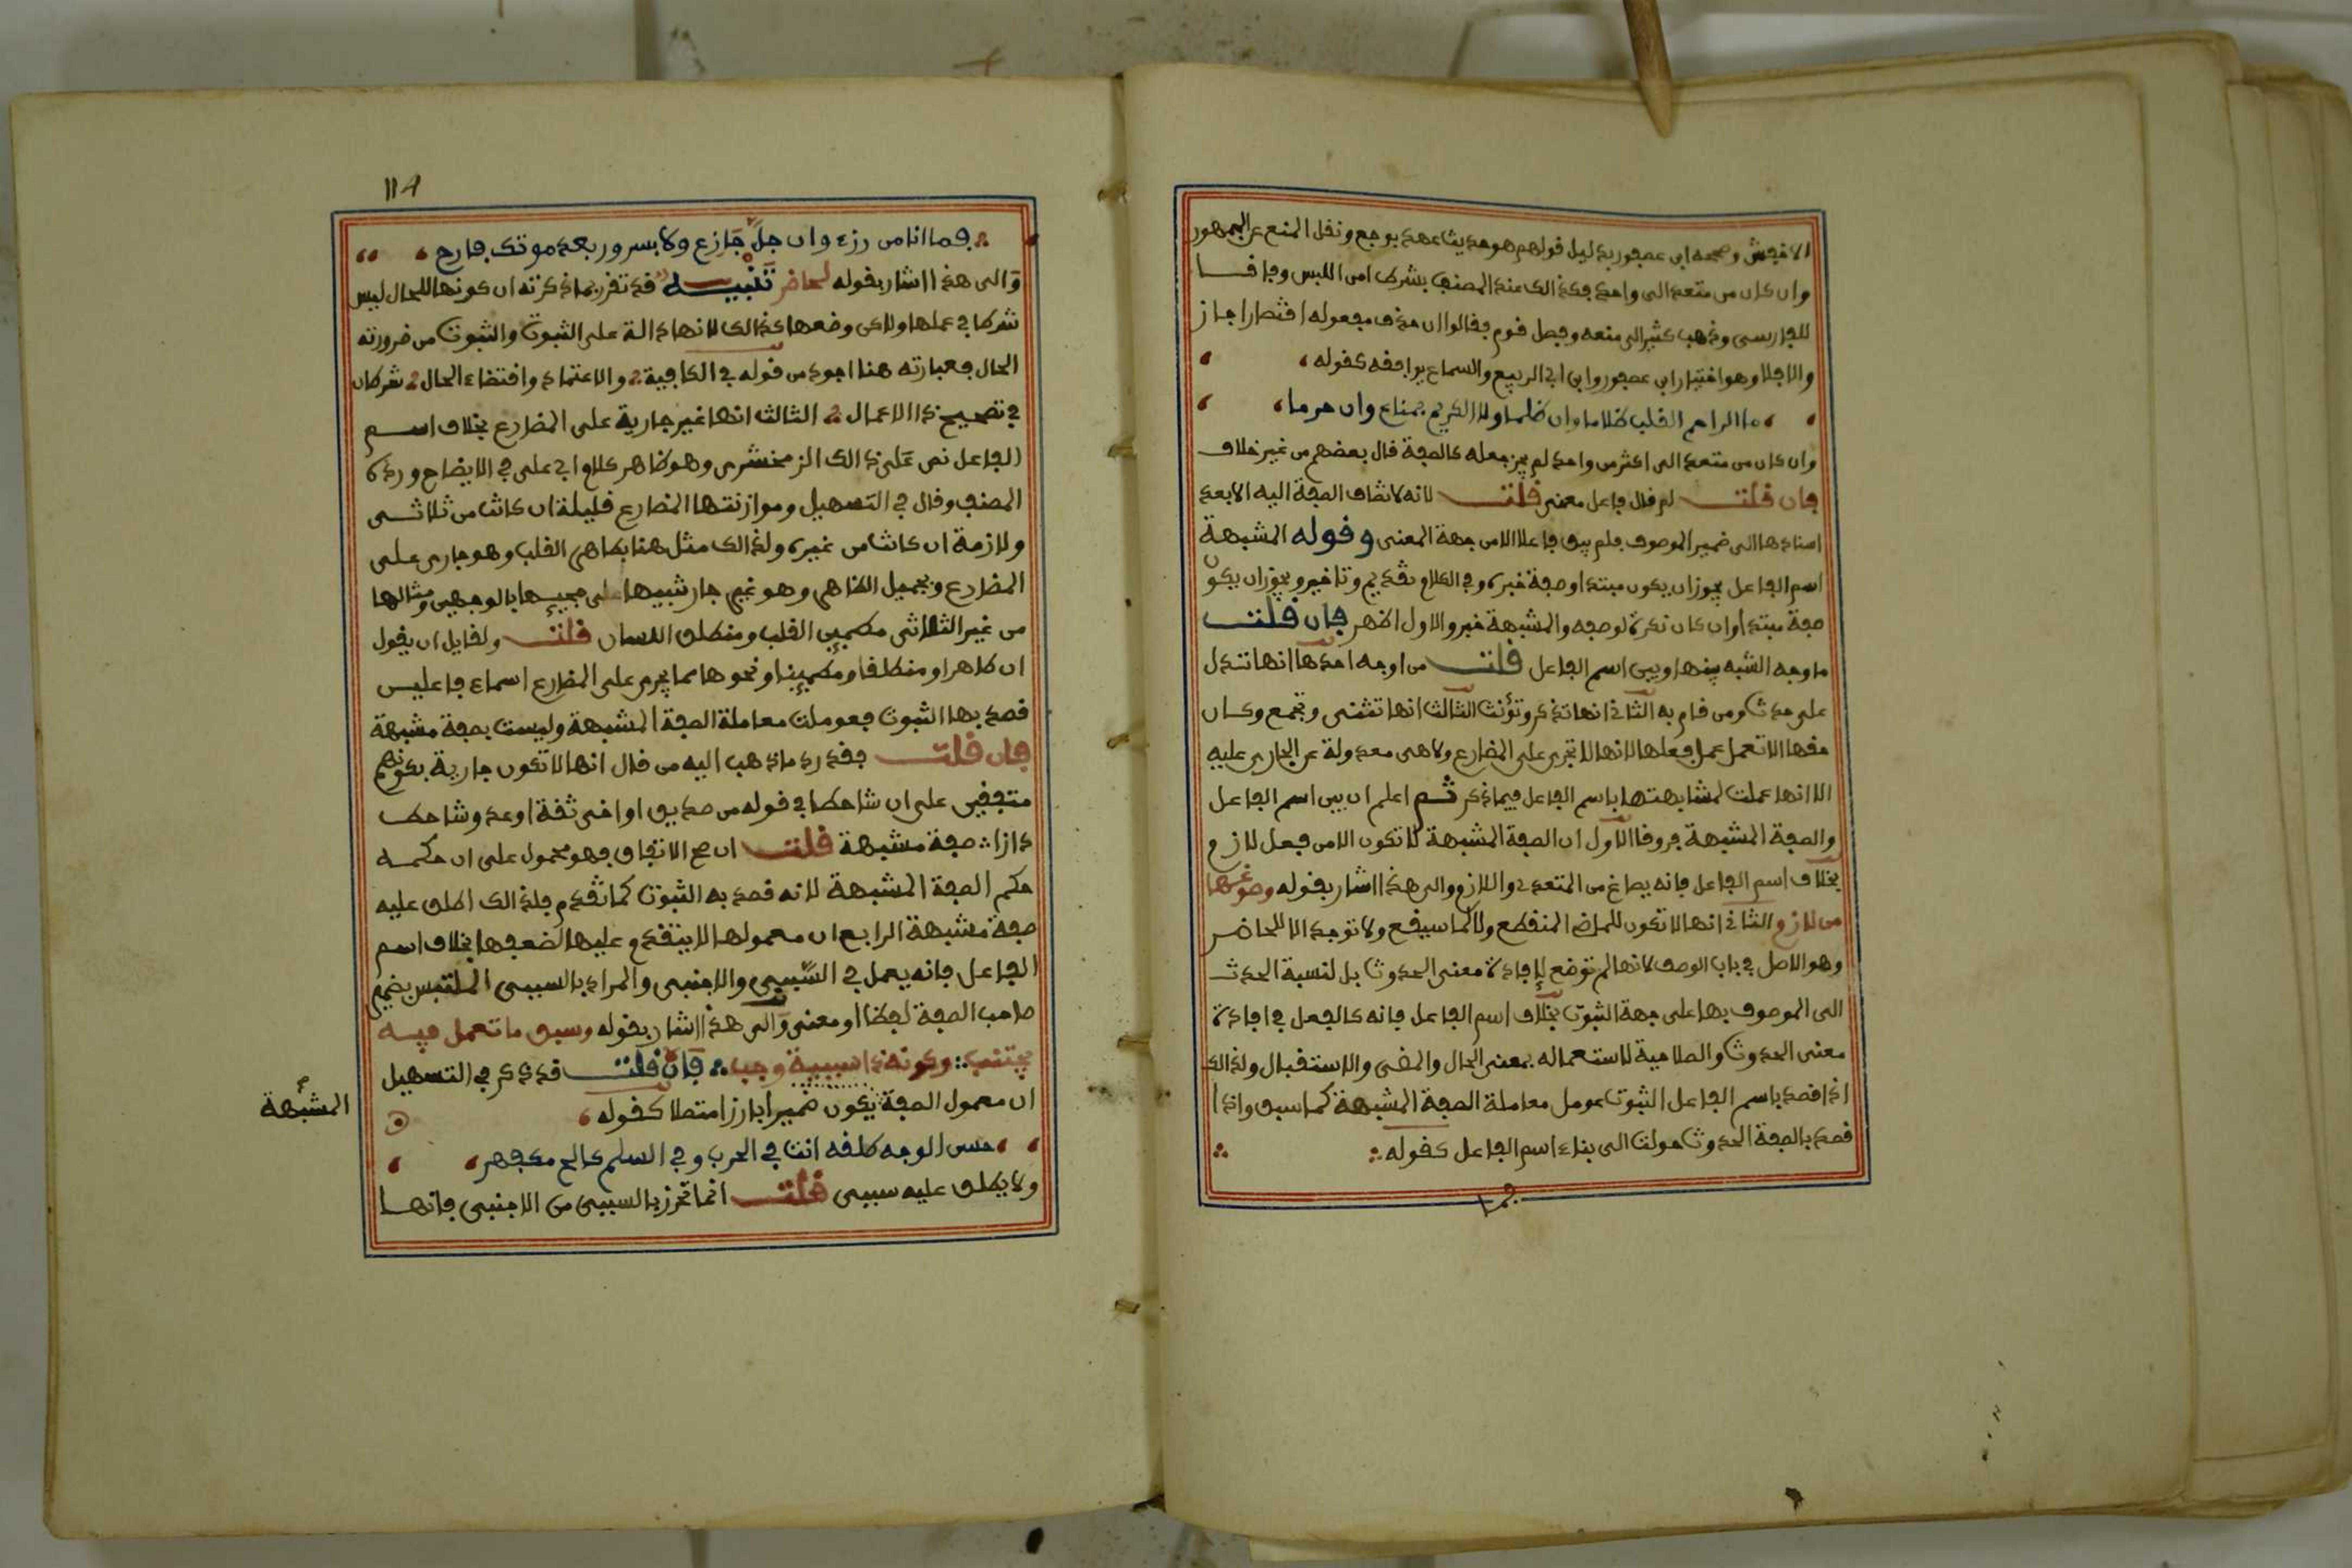 الاخفش وصححه ابن عصفور بدليل قولهم هو حديث عهد بوجع ونقل المنع عن الجمهور
وان كان من متعد الى واحد فكذالك عند المصنف بشرط امن اللبس وفاقا
للفارسي وذهب كثير الى منعه وفصل قوم فقالوا ان حذف مفعوله اقتصارا جاز
والا فلا وهو اختيار ابن عصفور وابن ابي الربيع والسماع يوافقه كقوله
ما الراحم القلب ظلاما وان ظلما ولا الكريم بمناع وان حرما
وان كان من متعد الى اكثر من واحد لم يجز جعله كالصفة قال بعضهم من غير خلاف
فان قلت لم قال فاعل معنى قلت لانه لا تضاف الصفة اليه الا بعد
اسنادها الى ضمير الموصوف فلم يبق فاعلا الا من جهة المعنى وقوله المشبهة
اسم الفاعل يجوز ان يكون مبتدا وصفة خبره وفي الكلام تقديم وتاخير ويجوز ان يكون
صفة مبتدا وان كان نكرة لوصفه والمشبهة خبر والاول اظهر فان قلت
ما وجه الشبه بينها وبين اسم الفاعل قلت من اوجه احدها انها تدل
على حدث ومن قام به الثاني انها تذكر وتؤنث الثالث انها تثنى وتجمع وكان
حقها الا تعمل عمل فعلها لانها لا تجري على المضارع ولا هى معدولة عن الجارى عليه
الا انها عملت لمشابهتها باسم الفاعل فيما ذكر ثم اعلم ان بين اسم الفاعل
والصفة المشبهة فروقا الاول ان الصفة المشبهة لا تكون الا من فعل لازم
بخلاف اسم الفاعل فانه يصاغ من المتعدي واللازم والى هذا اشار بقوله وصوغها
من لازم والثاني انها لا تكون للماضي المنقطع ولا لما سيقع ولا توجد الا للحاضر
وهو الاصل في باب الوصف لانها لم توضع لإفادة معنى الحدوث بل لنسبة الحدث
الى الموصوف بها على جهة الثبوت بخلاف اسم الفاعل فانه كالفعل في افادة
معنى الحدوث والصلاحية لاستعماله بمعنى الحال والمضي والاستقبال ولذالك
اذا قصد باسم الفاعل الثبوت عومل معاملة الصفة المشبهة كما سبق واذا
قصد بالصفة الحدوث حولت الى بناء اسم الفاعل كقوله
فما
١١٩
فما انا من رزء وان جل جازع ولا بسرور بعد موتك فارح
والى هذا اشار بقوله لحاضر تنبيه قد تقرر بما ذكرته ان كونها للحال ليس
شرطا في عملها ولاكن وضعها كذالك لانها دالة على الثبوت والثبوت من ضرورته
الحال فعبارته هنا اجود من قوله في الكافية والاعتماد واقتضاء الحال شرطان
في تصحيح ذا الاعمال الثالث انها غير جارية على المضارع بخلاف اسم
الفاعل نص على ذالك الزمخشرى وهو ظاهر كلام ابي على في الايضاح ورده
المصنف وقال في التسهيل وموازنتها المضارع قليلة ان كانت من ثلاثى
ولازمة ان كانت من غيره ولذالك مثل هنا بطاهر القلب وهو جارى على
المضارع وبجميل الظاهر وهو غير جار تنبيها على مجيئها بالوجهين ومثالها
من غير الثلاثى مطمين القلب ومنطلق اللسان قلت ولقايل ان يقول
ان طاهرا ومنطلقا ومطمينا ونحوها مما يجرى على المضارع اسماء فاعلين
قصد بها الثبوت فعوملت معاملة الصفة المشبهة وليست بصفة مشبهة
فان قلت فقد رد ما ذهب اليه من قال انها لا تكون جارية بكونهم
متفقين على ان شاحطا في قوله من صديق او اخى ثقة او عدو شاحط
دارا صفة مشبهة قلت ان صح الاتفاق فهو محمول على ان حكمه
حكم الصفة المشبهة لانه قصد به الثبوت كما تقدم فلذالك اطلق عليه
صفة مشبهة الرابع ان معمولها لا يتقدم عليها لضعفها بخلاف اسم
الفاعل فانه يعمل في السببي والاجنبى والمراد بالسببى الملتبس بضمير
صاحب الصفة لفظا او معنى والى هذا اشار بقوله وسبق ما تعمل فيه
مجتنب وكونه ذا سببية وجب فان قلت قد ذكر في التسهيل
ان معمول الصفة يكون ضميرا بارزا متصلا كقوله
حسن الوجه طلقه انت في الحرب وفي السلم كالح مكفهر
ولا يطلق عليه سببى قلت انما تحرز بالسببى من الاجنبى فانها
المشبهة